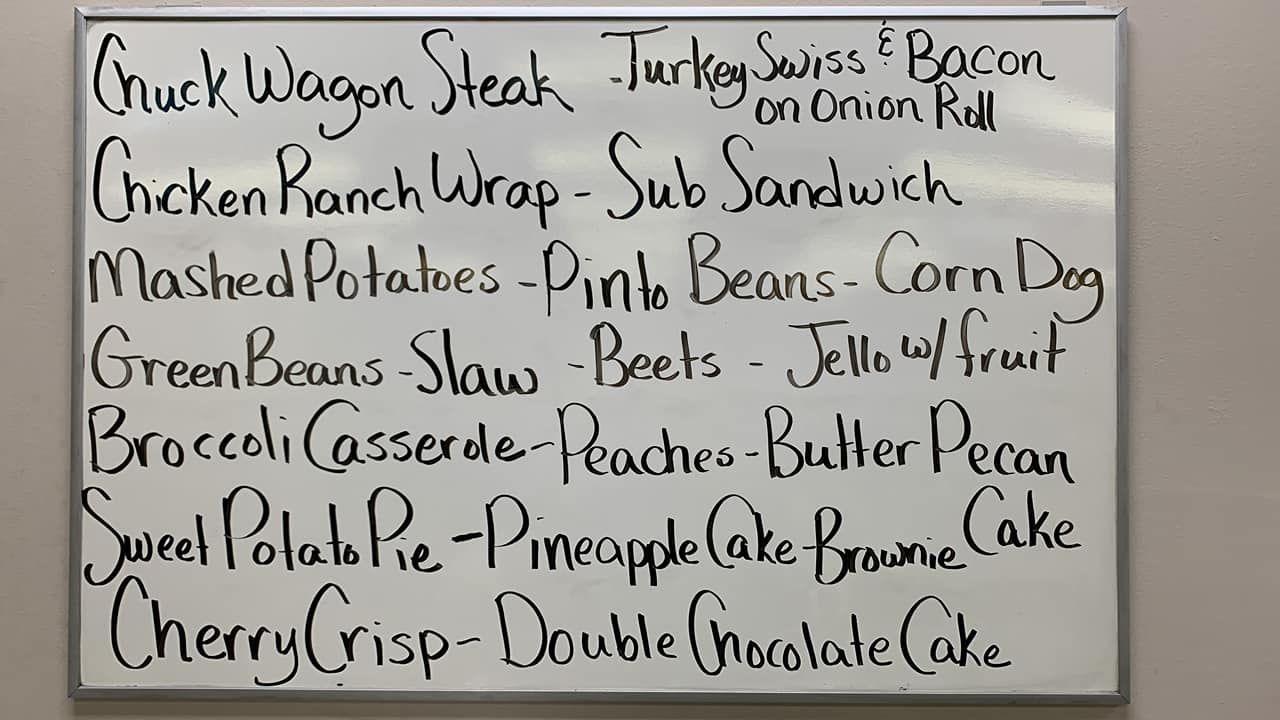 Chuck Wagon Steak -Turkey Swiss & Bacon
on Onion Roll
Chicken Ranch Wrap - Sub Sandwich
Mashed Potatoes - Pinto Beans - Corn Dog
Green Beans - Slaw - Beets - Jello w/ fruit
Broccoli Casserole - Peaches - Butter Pecan
Cake
Sweet Potato Pie - Pineapple Cake - Brownie
Cherry Crisp - Double Chocolate Cake